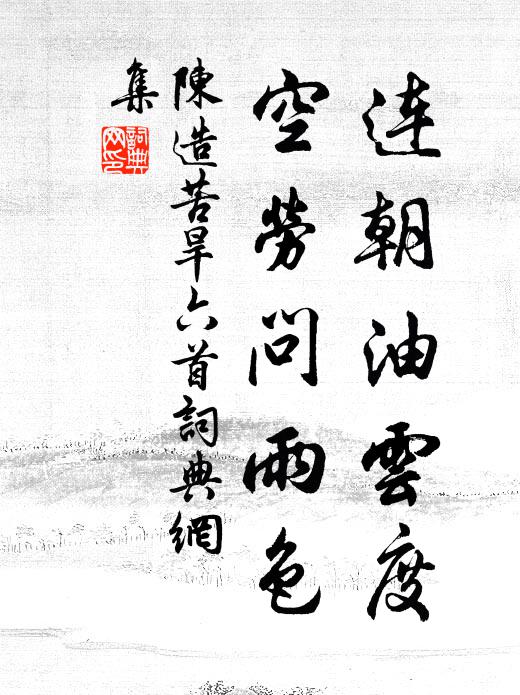 連朝油雲度
空勞問雨色
陳造苦旱六首詞典網
集
詞典
网印